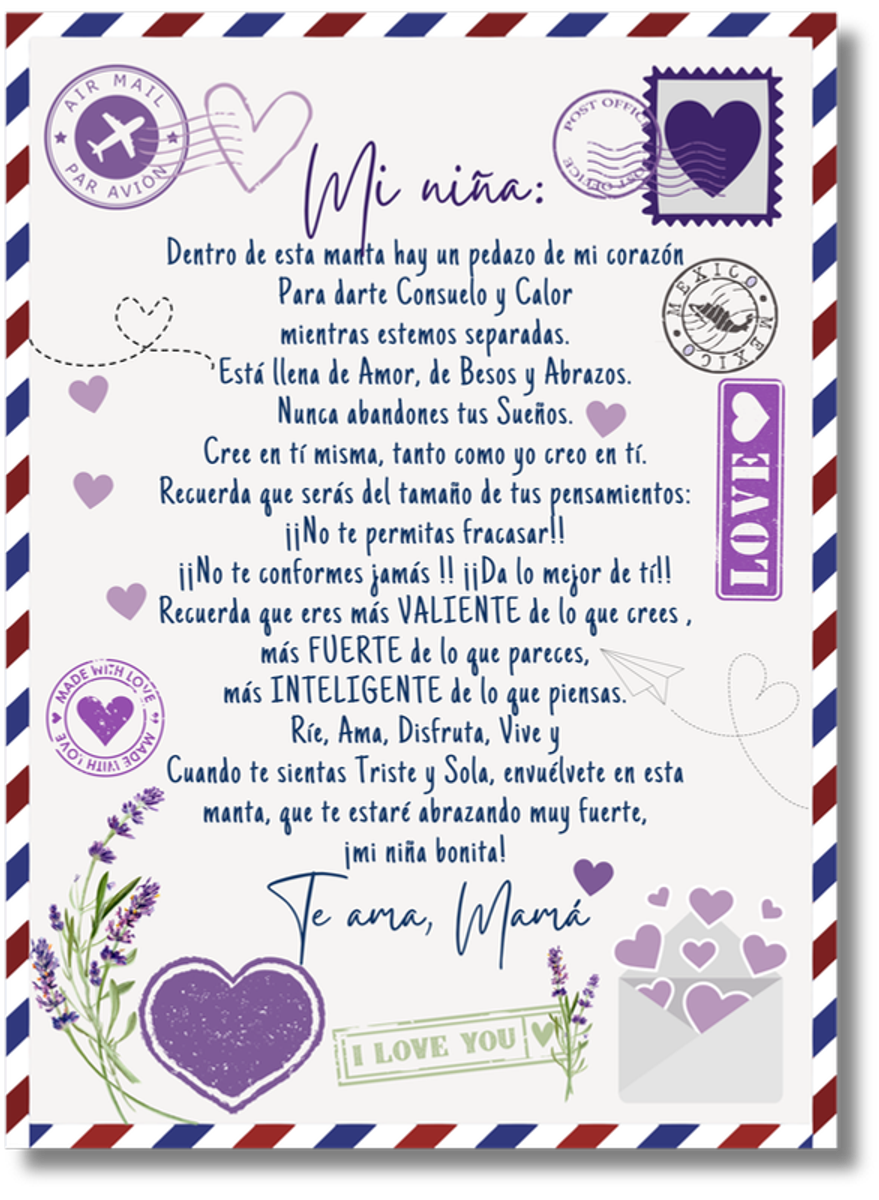 AIR MAIL
PAR AVIÓN
POST OFFICE
POST OFFICE
Mi niña:
Dentro de esta manta hay un pedazo de mi corazón
Para darte Consuelo y Calor
mientras estemos separadas.
Está llena de Amor, de Besos y Abrazos.
Nunca abandones tus Sueños.
Cree en tí misma, tanto como yo creo en tí.
Recuerda que serás del tamaño de tus pensamientos:
¡¡No te permitas fracasar!!
¡¡No te conformes jamás !! ¡¡Da lo mejor de tí!!
Recuerda que eres más VALIENTE de lo que crees ,
más FUERTE de lo que pareces,
más INTELIGENTE de lo que piensas.
Ríe, Ama, Disfruta, Vive y
Cuando te sientas Triste y Sola, envuélvete en esta
manta, que te estaré abrazando muy fuerte,
¡mi niña bonita!
Te ama, Mamá
MEXICO
MEXICO
LOVE
MADE WITH LOVE
MADE WITH LOVE
I LOVE YOU